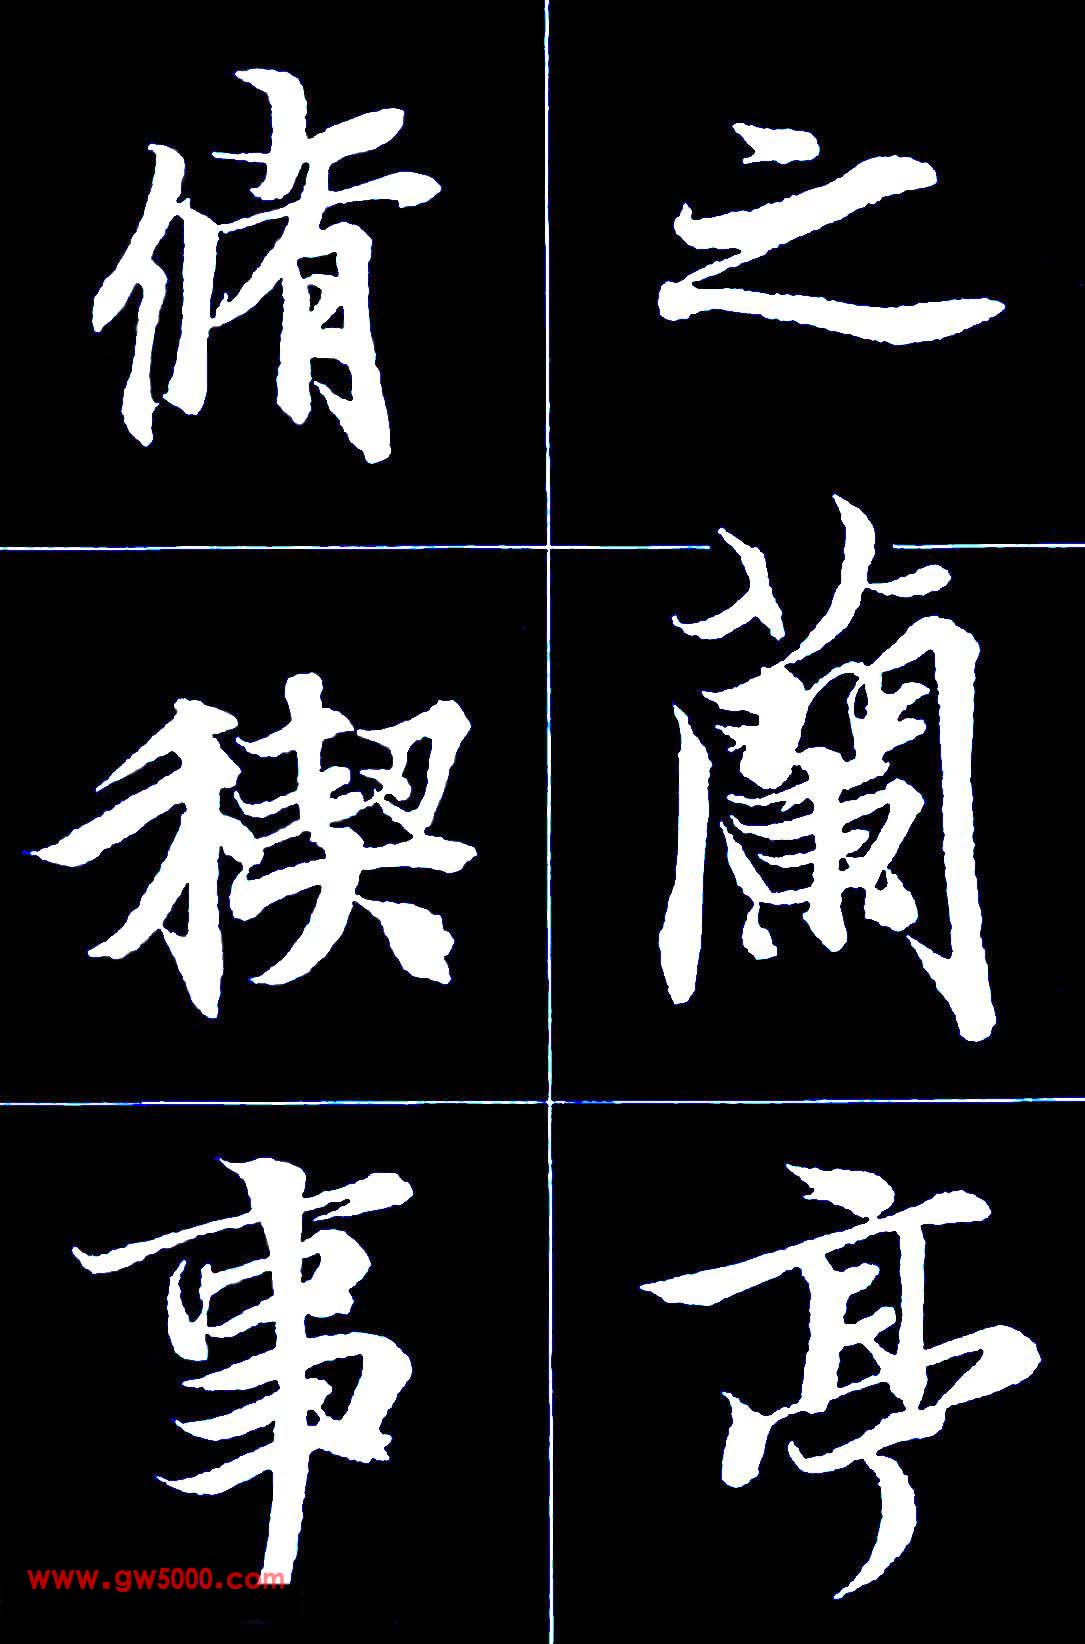 之蘭亭
脩稧事
www.gw5000.com